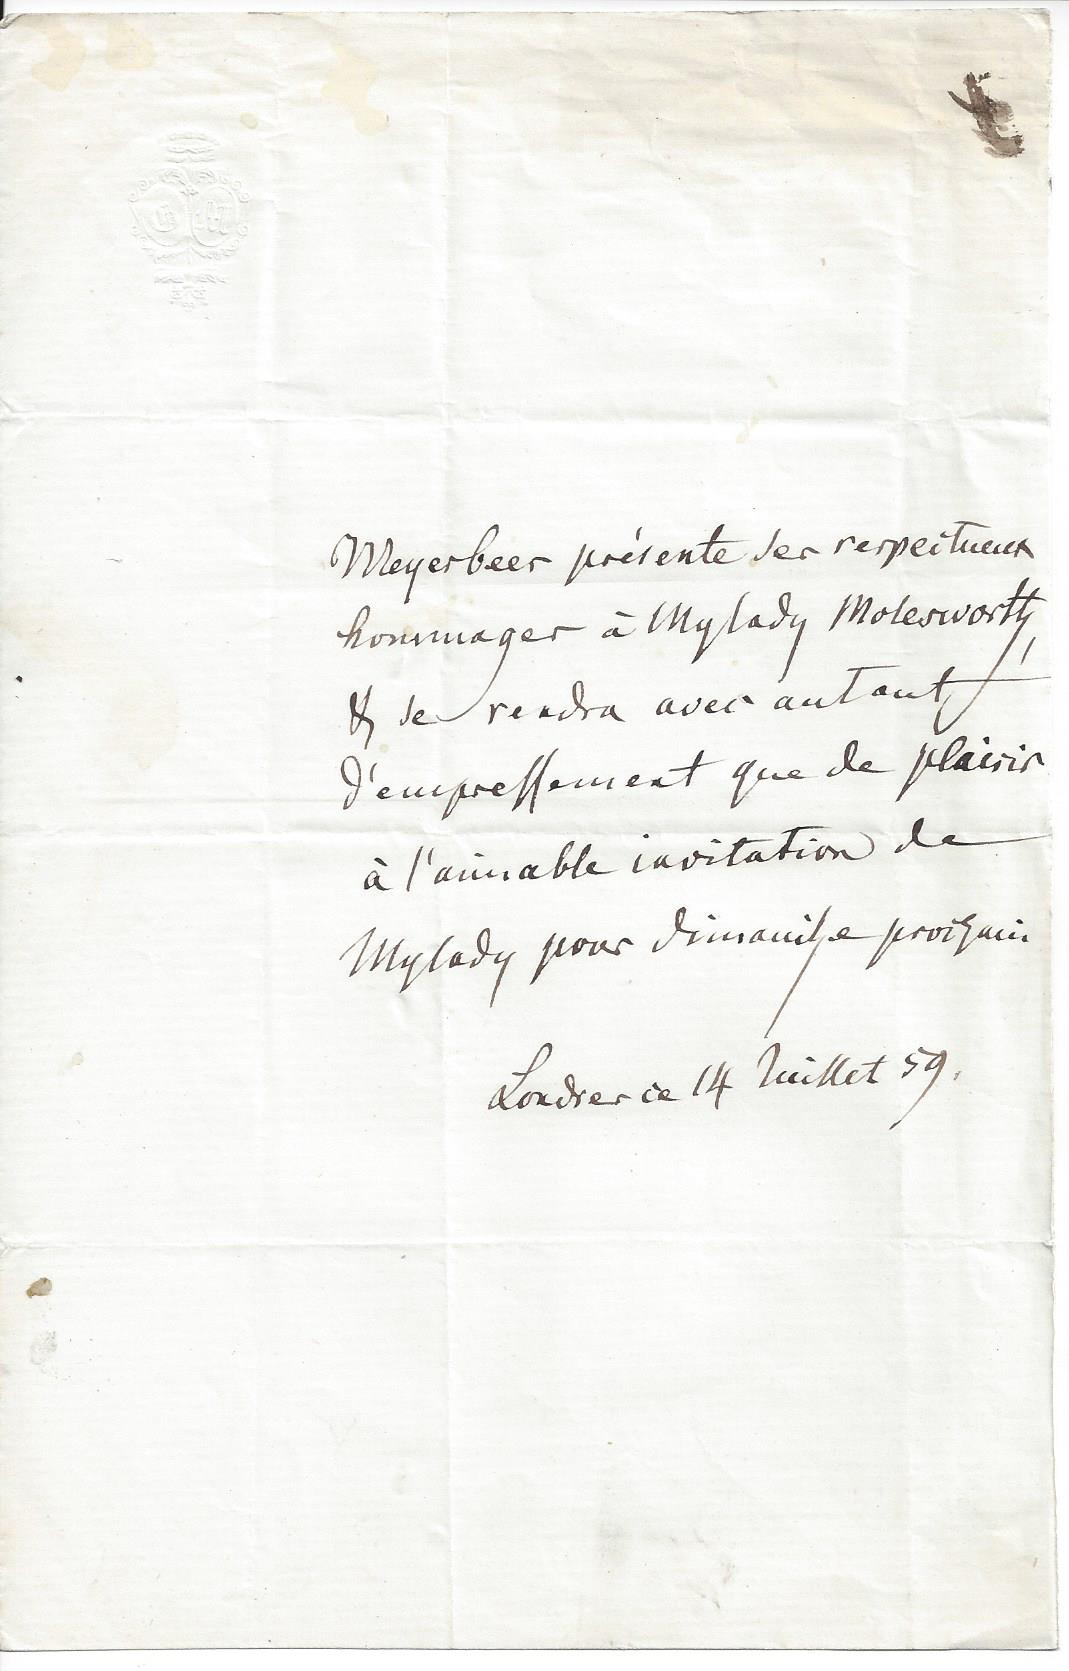 G M
Meyerbeer présente ses respectueux
hommages à Mylady Molesworth,
& se rendra avec autant
d'empressement que de plaisir
à l'aimable invitation de
Mylady pour dimanche prochain
Londres ce 14 Juillet 59.